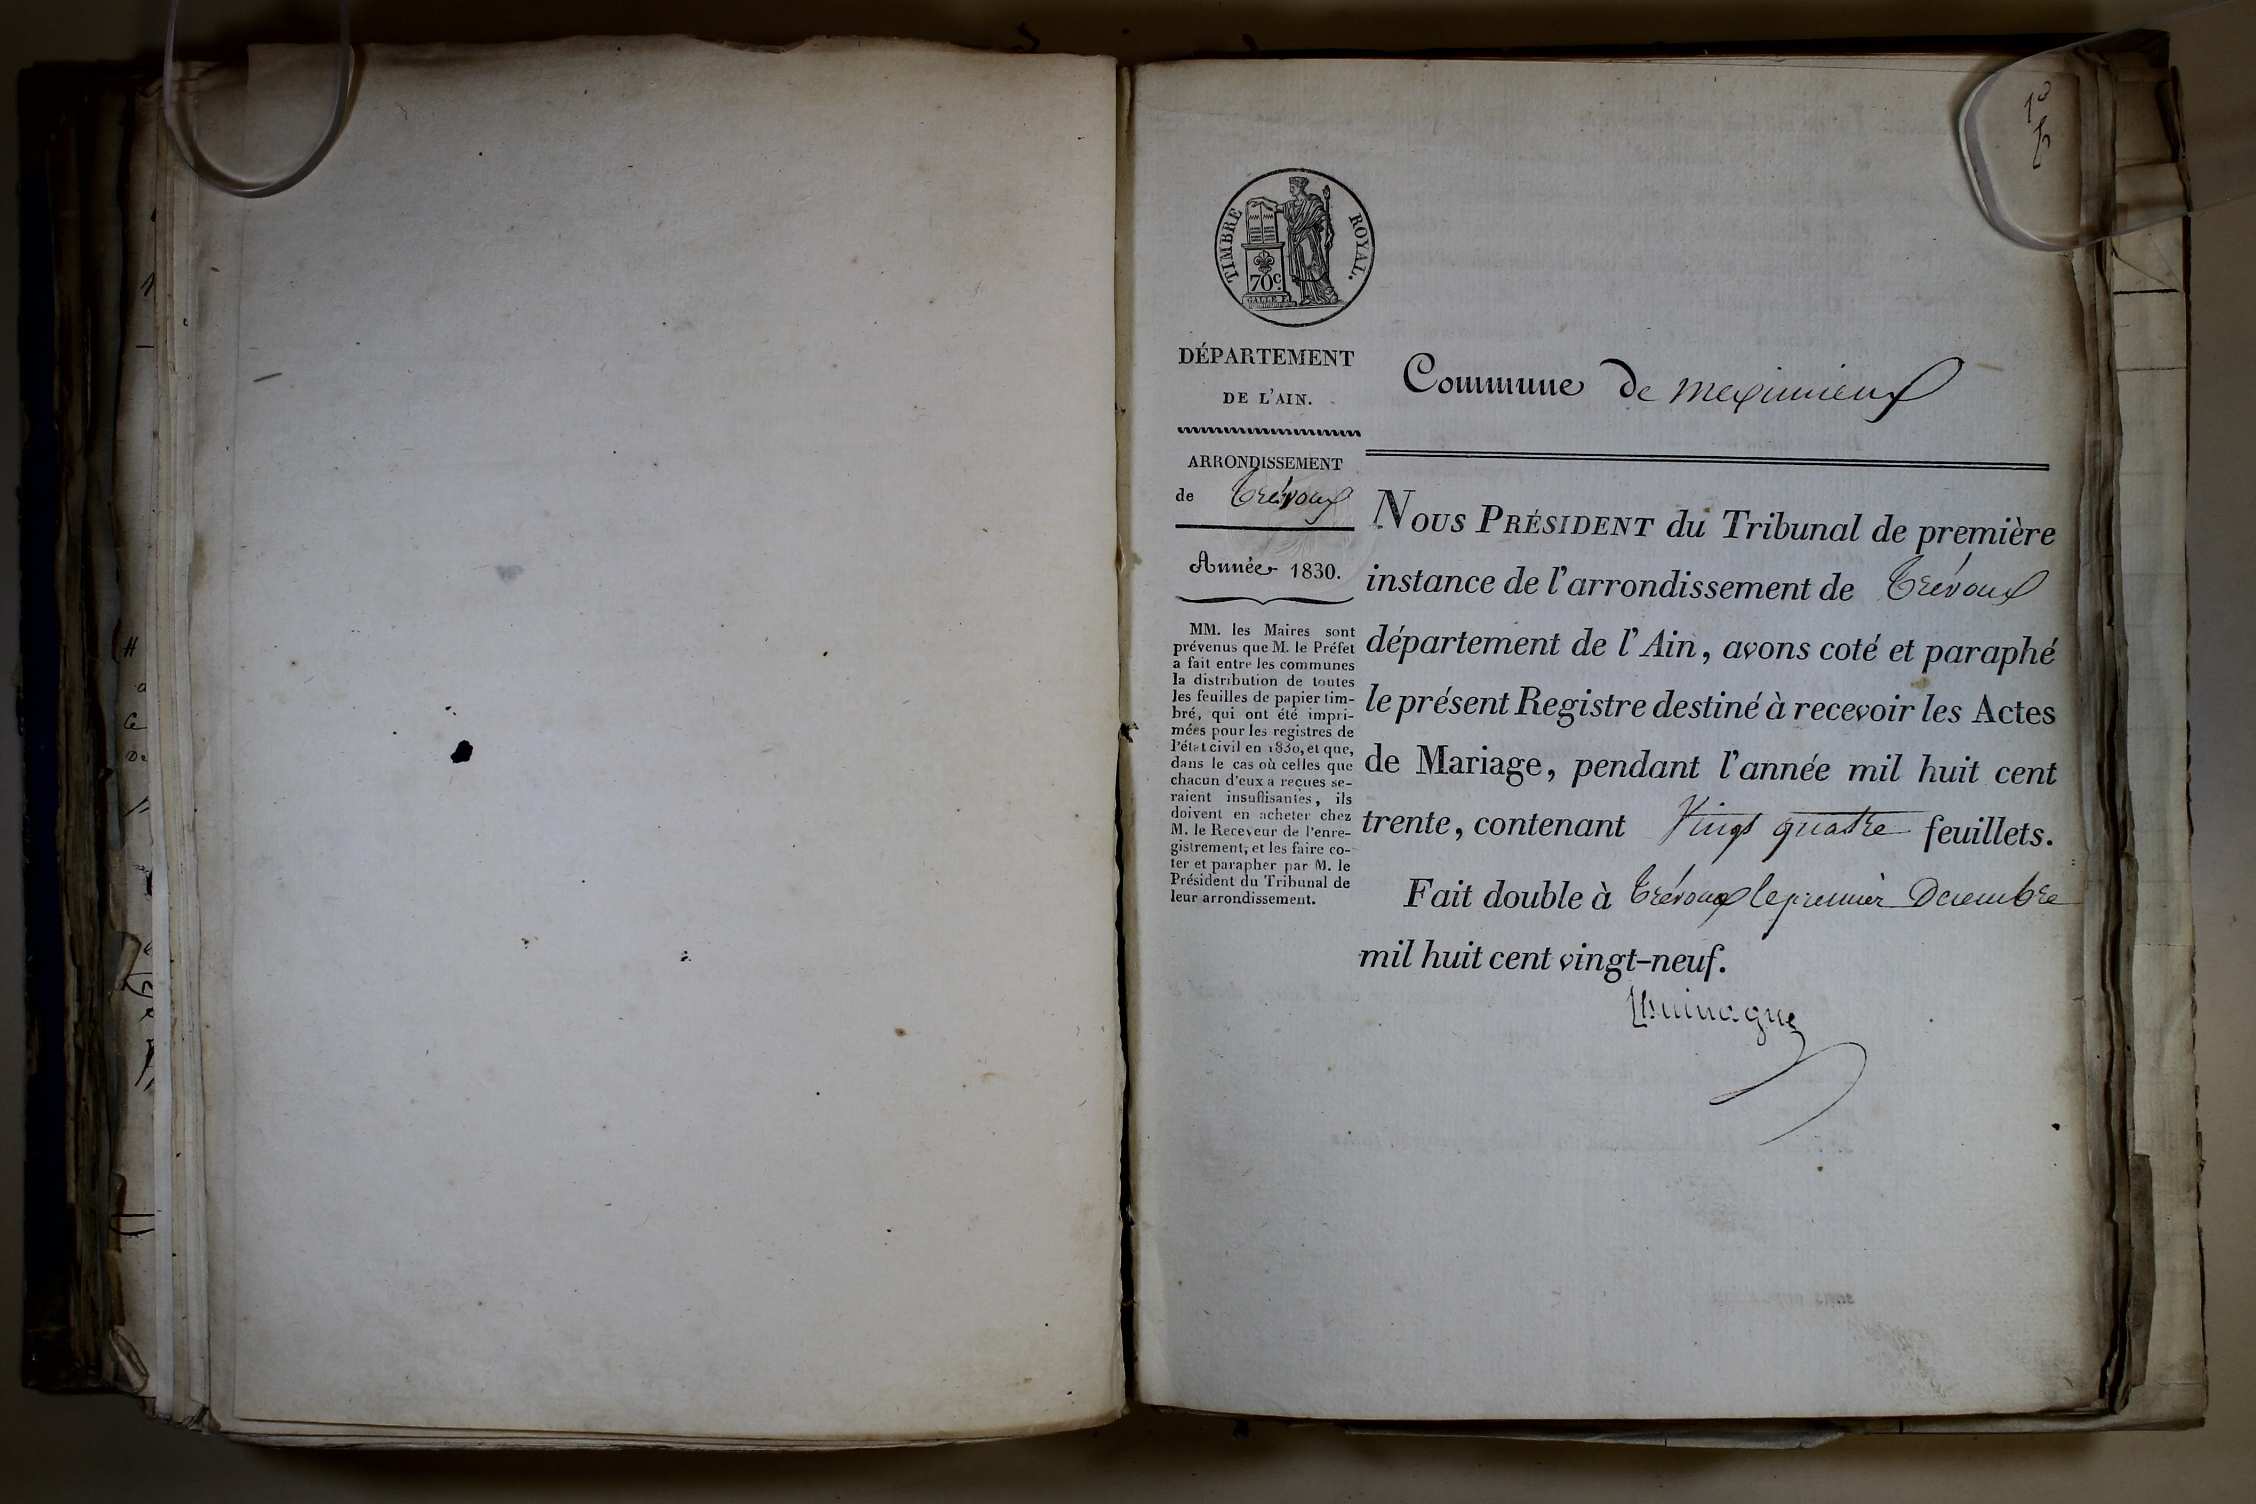 TIMBRE ROYAL.
70c.
DÉPARTEMENT
DE L'AIN.
ARRONDISSEMENT
de Trévoux
Année 1830.
MM. les Maires sont
prévenus que M. le Préfet
a fait entre les communes
la distribution de toutes
les feuilles de papier tim-
bré, qui ont été impri-
mées pour les registres de
l'état civil en 1830, et que,
dans le cas où celles que
chacun d'eux a reçues se-
raient insuffisantes, ils
doivent en acheter chez
M. le Receveur de l'enre-
gistrement, et les faire co-
ter et parapher par M. le
Président du Tribunal de
leur arrondissement.
Commune de meximieux
NOUS PRÉSIDENT du Tribunal de première
instance de l'arrondissement de Trévoux
département de l'Ain, avons coté et paraphé
le présent Registre destiné à recevoir les Actes
de Mariage, pendant l'année mil huit cent
trente, contenant Vingt quatre feuillets.
Fait double à Trévoux le premier Decembre
mil huit cent vingt-neuf.